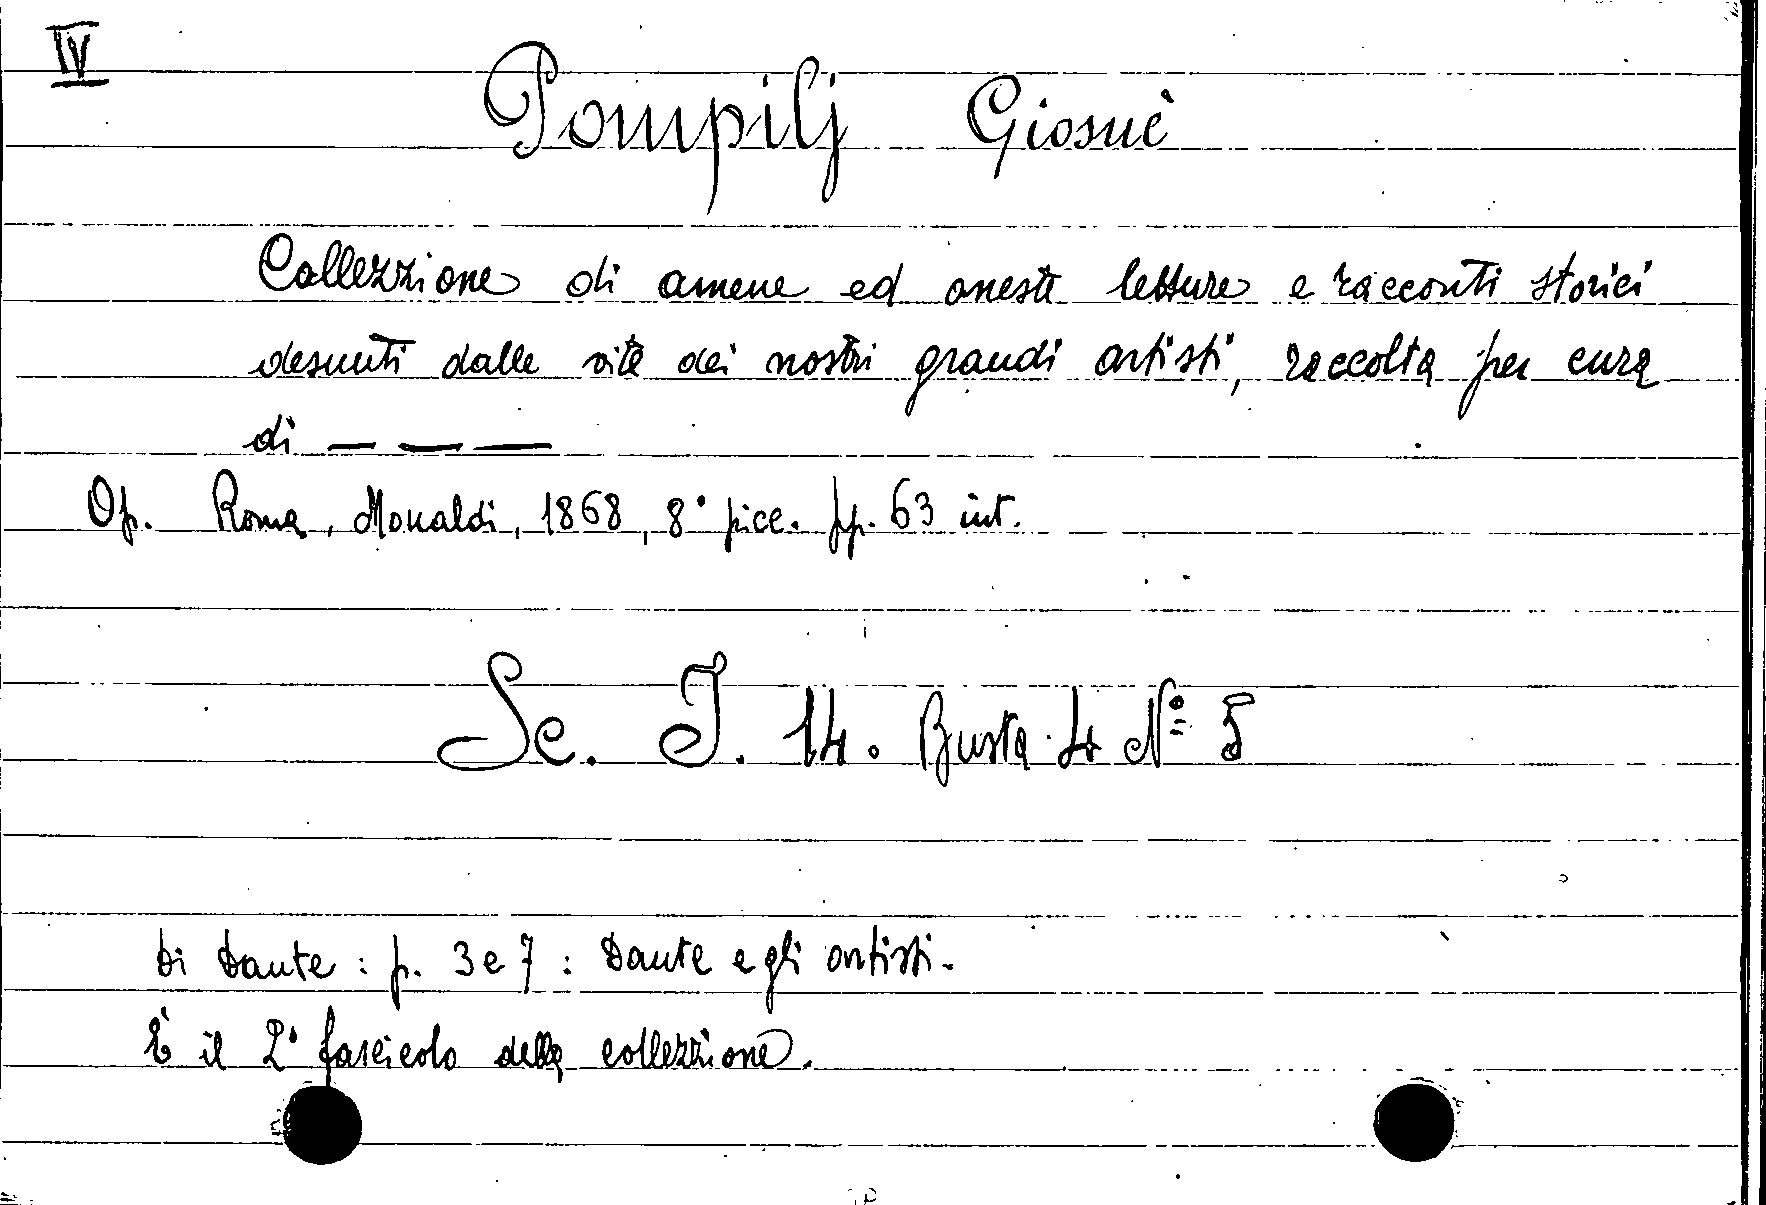 IV
Pompilj Giosuè
Collezzione di amene ed oneste letture e racconti storici
desunti dalle vite dei nostri grandi artisti, raccolta per cura
di — — —
Op. Roma, Monaldi, 1868, 8° picc. pp. 63 int.
Sc. I. 14. Busta 4 Nº 5
Di Dante: p. 3 e 7: Dante e gli artisti.
È il 2° fascicolo della collezzione.